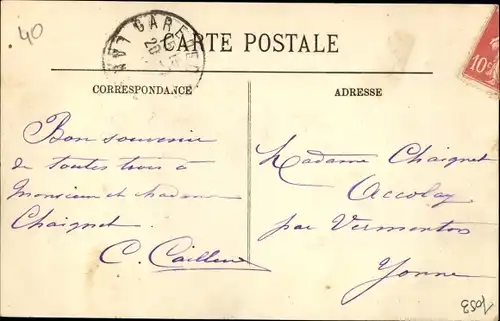 40
CARTE POSTALE
10c
CORRESPONDANCE
ADRESSE
Bon souvenir
de toutes trois à
Monsieur et Madame
Chaignet.
C.
Madame Chaignet
Accolay
par Vermenton
Yonne
1053